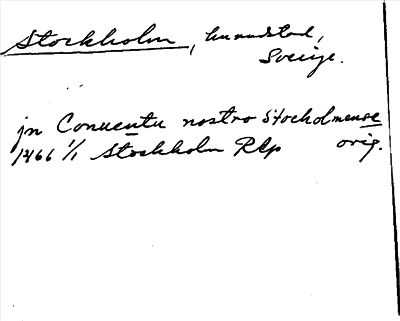 Stockholm, huvudstad,
Sverige.
jn Conuentu nostro Stocholmense
1466 1/1 Stockholm Rep orig.